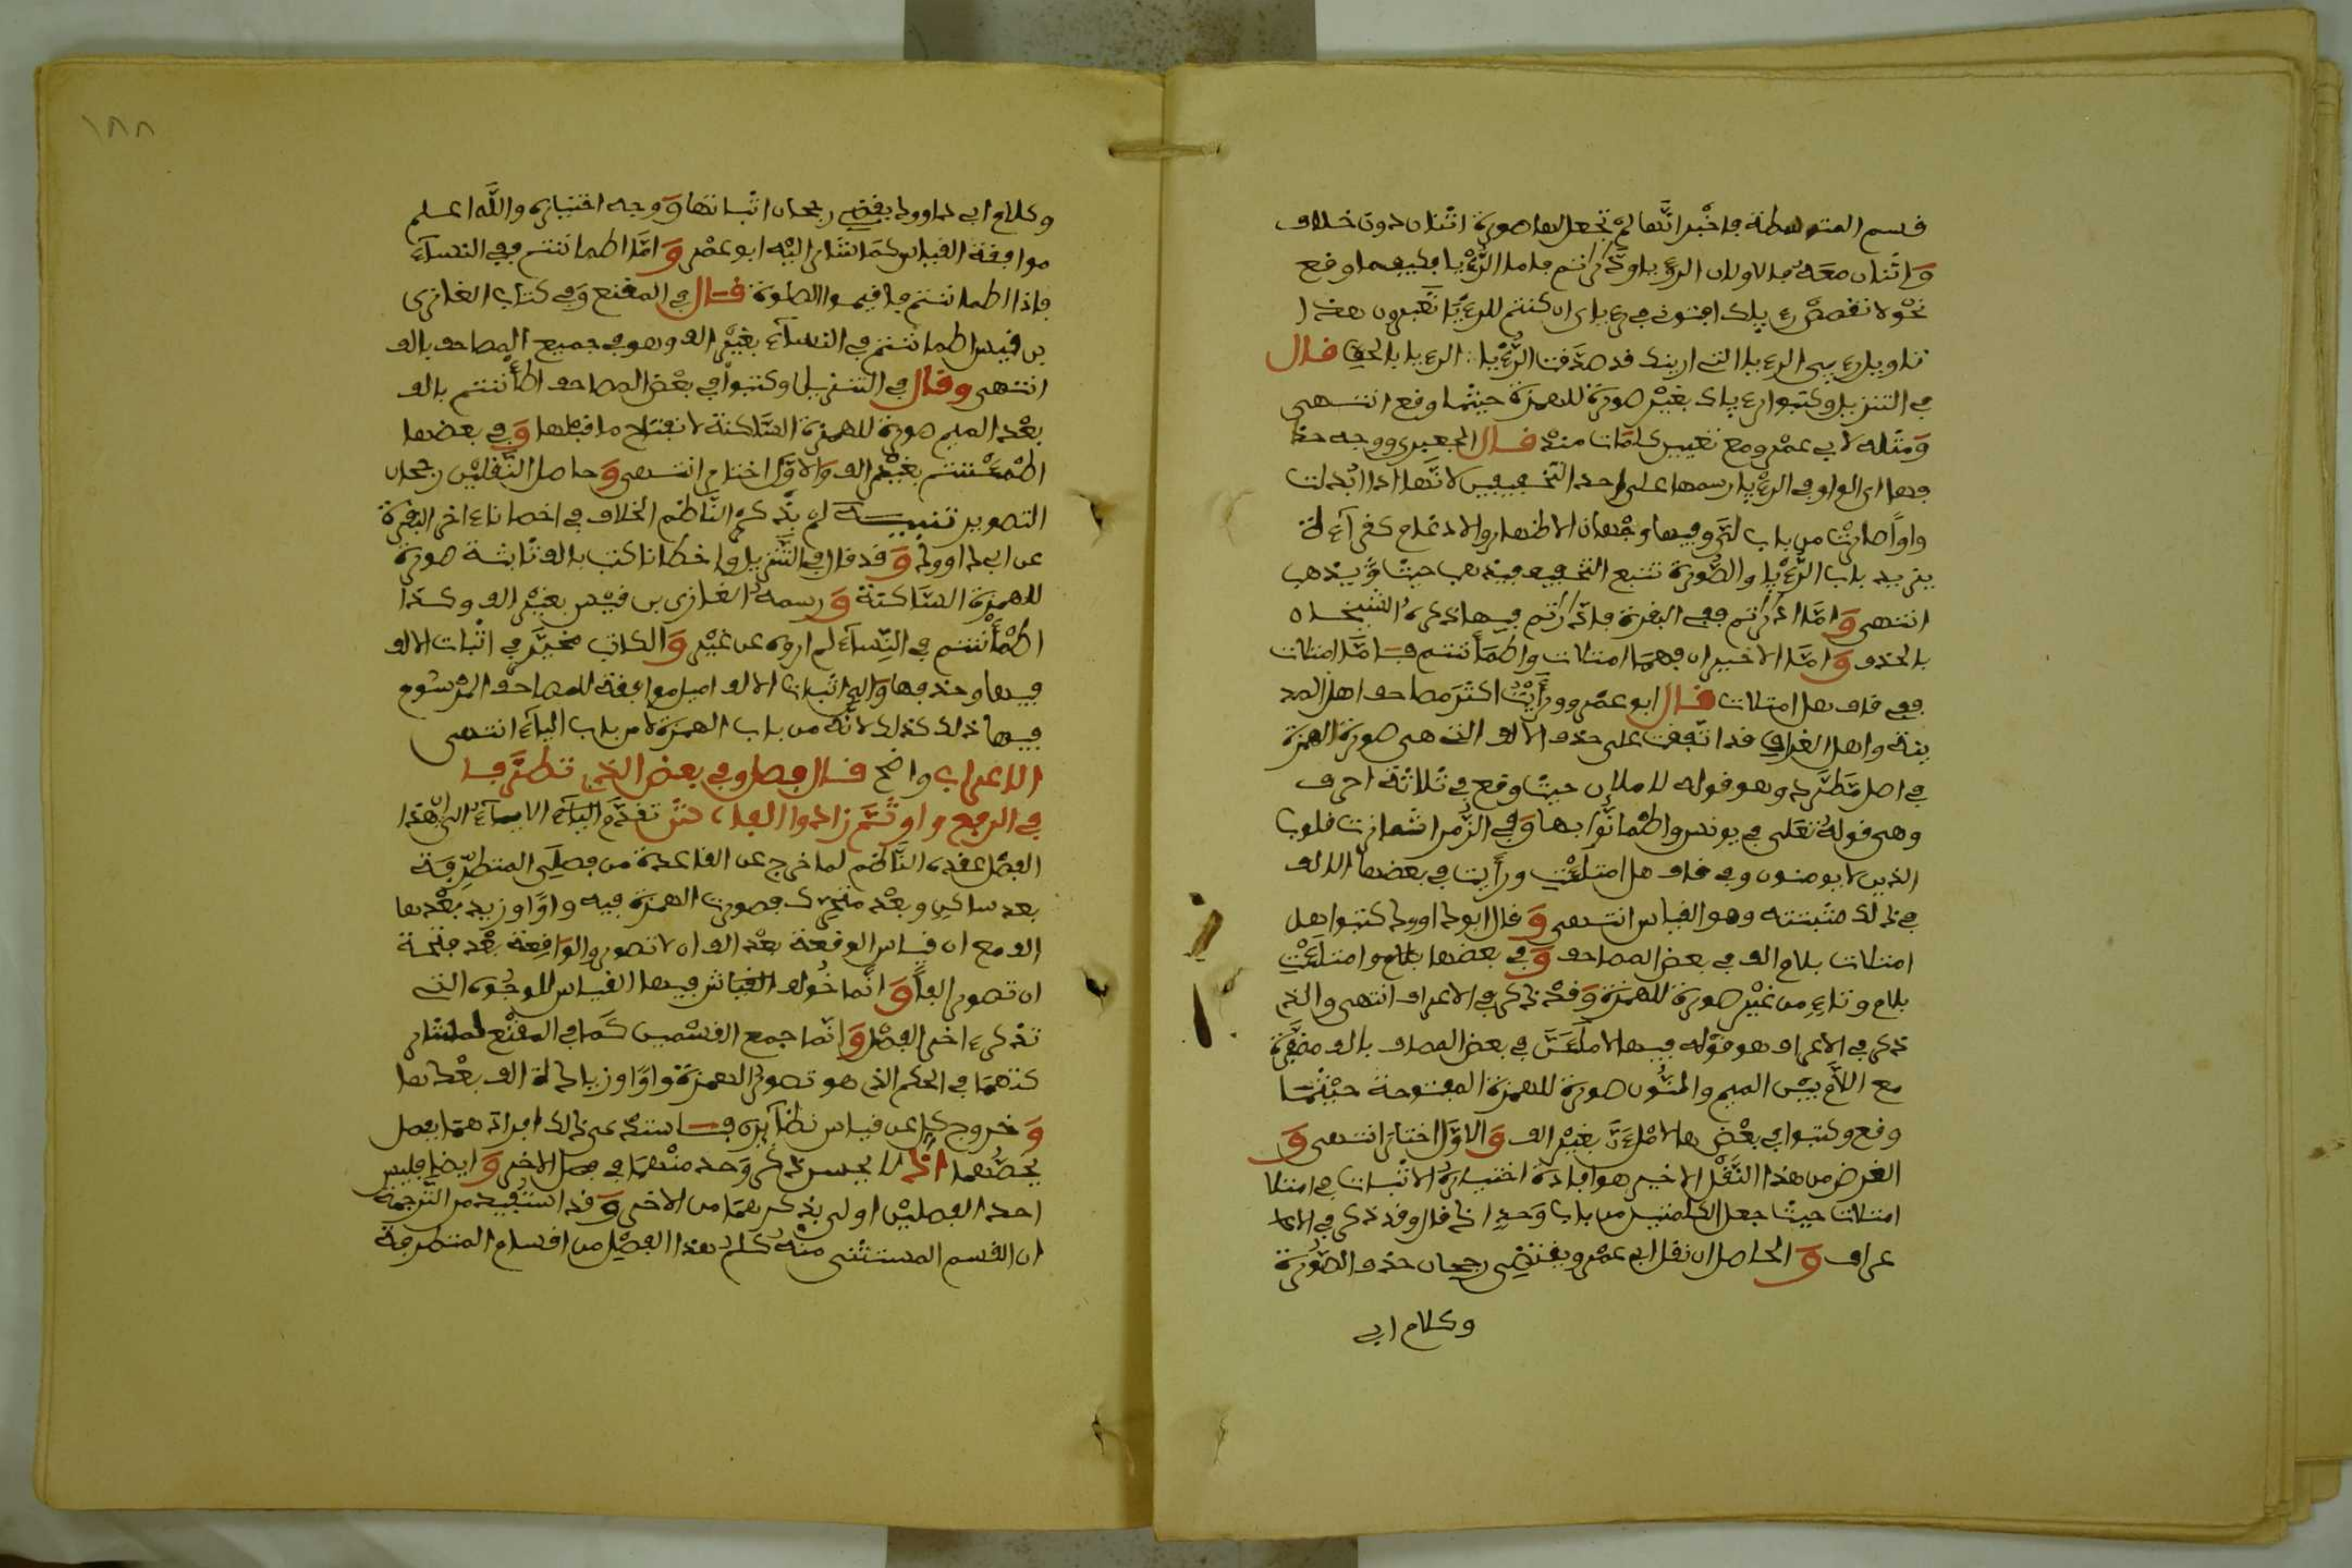 فسم المتوسطة فاخبر انها لم تجعل لها صورة اثنان دون خلاف
وَاثنان معه فالاولان الرءيا وادّٰرٰتم فاما الرءيا فكيفما وفع
نحو لا تفصص رءياك افتوني في رءياي ان كنتم للرءيا تعبرون هذا
تاويل رءيي الرءيا التي ارينك فد صدفت الرءيا الرءيا بالحق فال
في التنزيل وكتبوا رءياك بغير صورة للهمزة حيثما وفع انتهى
وَمثله لابي عمرو مع تغيير كلمات منه فال الجعبري ووجه حذ
فها اي الواو في الرءيا رسمها على احد التخفيفين لانها اذا ابدلت
واوًا صارت من باب لتروفيها وجهان الاظهار والادغام كفراءة
يزيد باب الرءيا والصورة تتبع التخفيف فيذهب حيث يذهب
انتهى وَامّا ادّٰرٰتم ففي البفرة فادّٰرٰتم فيها ذكره الشيخان
بالحذف وَامّا الاخيران فهما امتلات واطمأننتم فامّا امتلات
ففي فاف هل امتلات فال ابو عمرو ورأيت اكثر مصاحف اهل المد
ينة واهل العراق فد اتفقت على حذف الالف التي هي صورة الهمزة
في اصل مطرد وهو فوله لاملان حيث وقع في ثلاثة احرف
وهي فوله تعلى في يونس واطمانوا بها وَفي الزمر اشمازت فلوب
الذين لا يومنون وفي فاف هل امتلئت ورأيت في بعضها الالف
في ذلك مثبتة وهو الفياس انتهى وَفال ابو داوود كتبوا هل
امتلات بلام الف في بعض المصاحف وَفي بعضها بلام وامتلئت
بلام وتاء من غير صورة للهمزة وَفد ذكر في الاعراف انتهى والذي
ذكر في الاعراف هو فوله فيها لاملئن في بعض المصاحف بالف مضفرة
مع اللام بين الميم والنون صورة للهمزة المفتوحة حيثما
وفع وكتبوا في بعضها لاملئن بغير الف وَالاول اختار انتهى وَ
الغرض من هذا النقل الاخير هو افادة اختياره الاثبات في امتلا
امتلات حيث جعل الكلمتين من باب وَحدٍ اذ فال وفد ذكر في الا
عراف وَالحاصل ان نفل ابي عمرو يفتضي رجحان حذف الصورة
وكلام ابي
١٨٨
وكلام ابي داوود يفضي رجحان اثباتها وَوجه اختياره والله اعلم
موافقة الفياس كما اشار اليه ابو عمرو وَامّا اطماننتم ففي النساء
فاذا اطماننتم فافيموا الصلوة فال في المفنع وَفي كتاب الغازي
بن فيس اطماننتم في النساء بغير الف وهو في جميع المصاحف بالف
انتهى وفال في التنزيل وكتبوا في بعض المصاحف اطمأننتم بالف
بعد الميم صورة للهمزة الساكنة لانفتاح ما فبلها وَفي بعضها
اطمئننتم بغير الف والاول اختار انتهى وَحاصل النفلين رجحان
التصوير تنبيه لم يذكر الناظم الخلاف في اخطانا ءاخر البفرة
عن ابي داوود وَفد فال في التنزيل واخطانا كتب بالف ثابتة صورة
للهمزة الساكنة وَرسمه الغازي بن فيس بغير الف وكذا
اطمأننتم في النساء لم اروه عن غيره وَالكاتب مخير في اثبات الالف
فيها وحذفها والى اثبات الالف اميل موافقة للمصاحف المرسوم
فيها ذلك كذلك لانه من باب الهمزة لا من باب الياء انتهى
الاعراب واضح فال فصل وفي بعض الذي تطرّفا
في الرفع واو ثمّ زادوا الفا، ش تقدم الياء الايماء الى ان هذا
الفصل عفده الناظم لما خرج عن الفاعدة من فصلي المتطرفة
بعد ساكن وبعد متحرك فصورت الهمزة فيه واوًا وزيد بعدها
الف مع ان فياس الوافعة بعد الف ان لا تصور والوافعة بعد فتحة
ان تصور الفاً وَانما خولف الفياس فيها الفياس للوجوه التي
تذكر ءاخر الفصل وَانما جمع الفسمين كما في المفنع لمشار
كتهما في الحكم الذي هو تصوير الهمزة واوًا وزيادة الف بعدها
وَخروج كل عن فياس نظائره فاستند عن ذلك افرادهما بفصل
يخصّهما اذ لا يحسن ذكر وَحد منهما في فصل الاخر وَايضا فليس
احد الفصلين اولى بذكرهما من الاخر وَفد استفيد من الترجمة
ان الفسم المستثنى منه كلم هذا الفصل من افسام المتطرفة